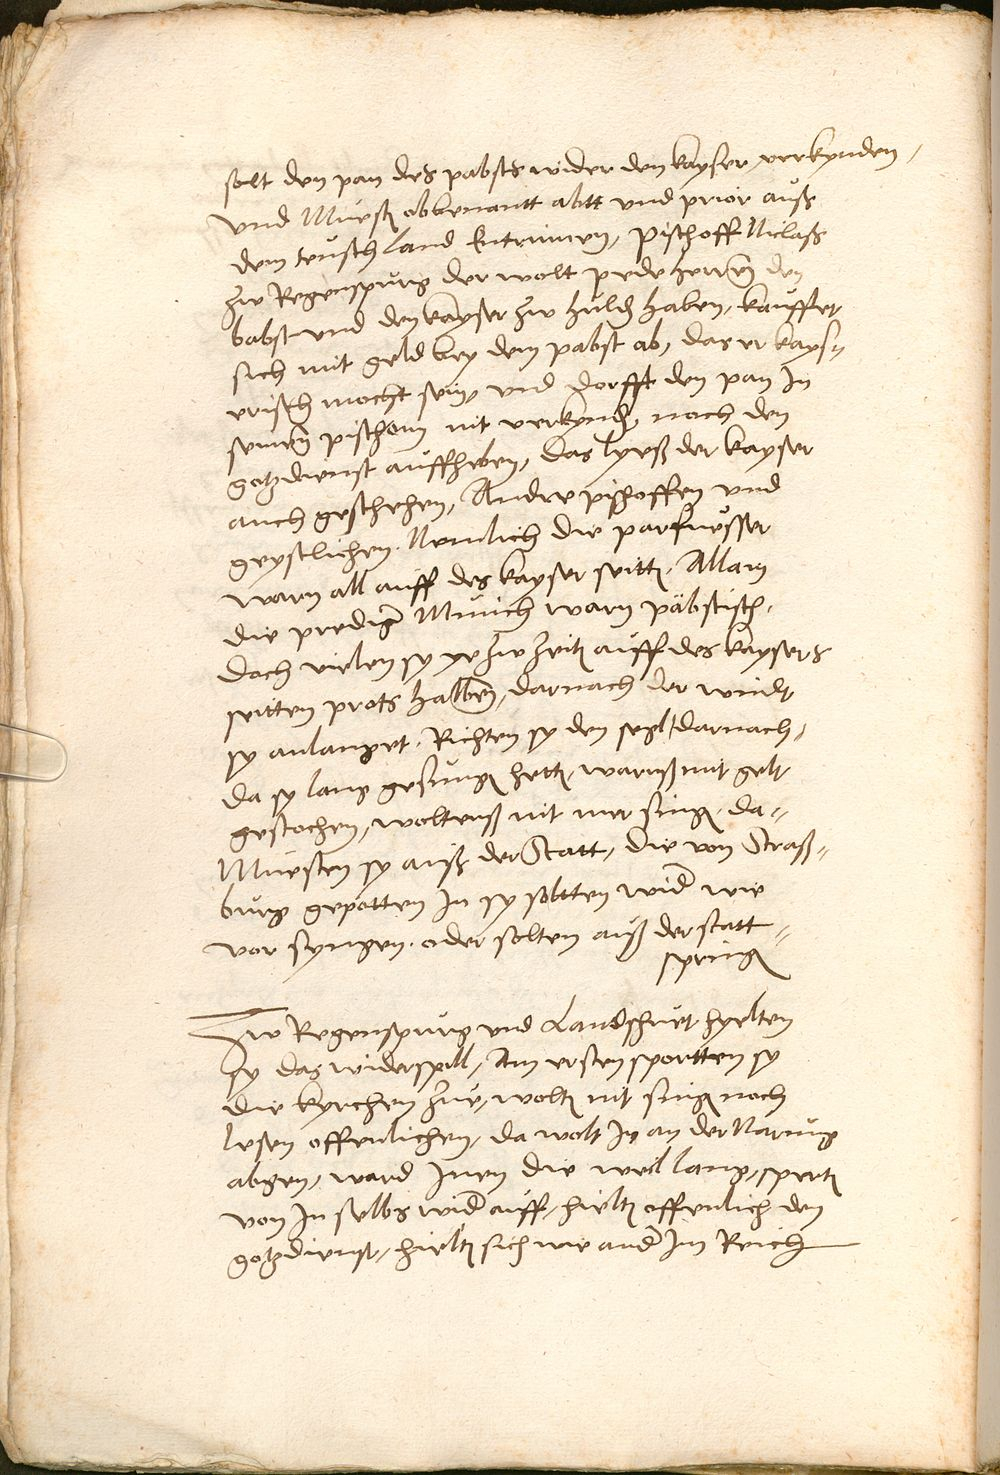 solt den pan des pabsts wider den kayser verkynden,
vnd Muest obbenantt abtt vnd prior auß
dem teusch land Entrinnen, Pischoff Niclaß
zw Regenspurg der wolt pede herren den
babst vnd den kayser zw huld haben, kauffet
sich mit geld bey dem pabst ab, das er kays-
erisch mocht sein, vnd dorfft den pan In
seinem pischom nit verkynden, noch den
gotzdienst auffheben, das lyeß der kayser
auch geschehen, Andre pischoffen vnd
geystlichen. Nemlich die parfuesser
warn all auff des kayser seitten, Allain
die prediger Munich warn päbstisch,
doch vielen sy ye zw zeitten auff des kaysers
seitten prots halben, darnach der windt
sy anlanget. Richten sy den segl darnach,
da sy lang gesungen hetten, warnß mit gelt
gestochen, woltenß nit mer singen, da-
Muesten sy auß der Statt, die von Straß-
burg gepotten In sy soltten wider wie
vor syngen. oder solten auß der statt-
springen
Zw Regenspurg vnd Landshuet hyelten
sy das widerspill, Am ersten sportten sy
die kyrchen zue, wolten nit singen noch
lesen offenlichen, da wolt In an der Narung
abgen, ward Inen die weil lang, sperten
von In selbs wider auff, hielten offenlich den
gotzdienst, hielten sich wie ander Im Reich